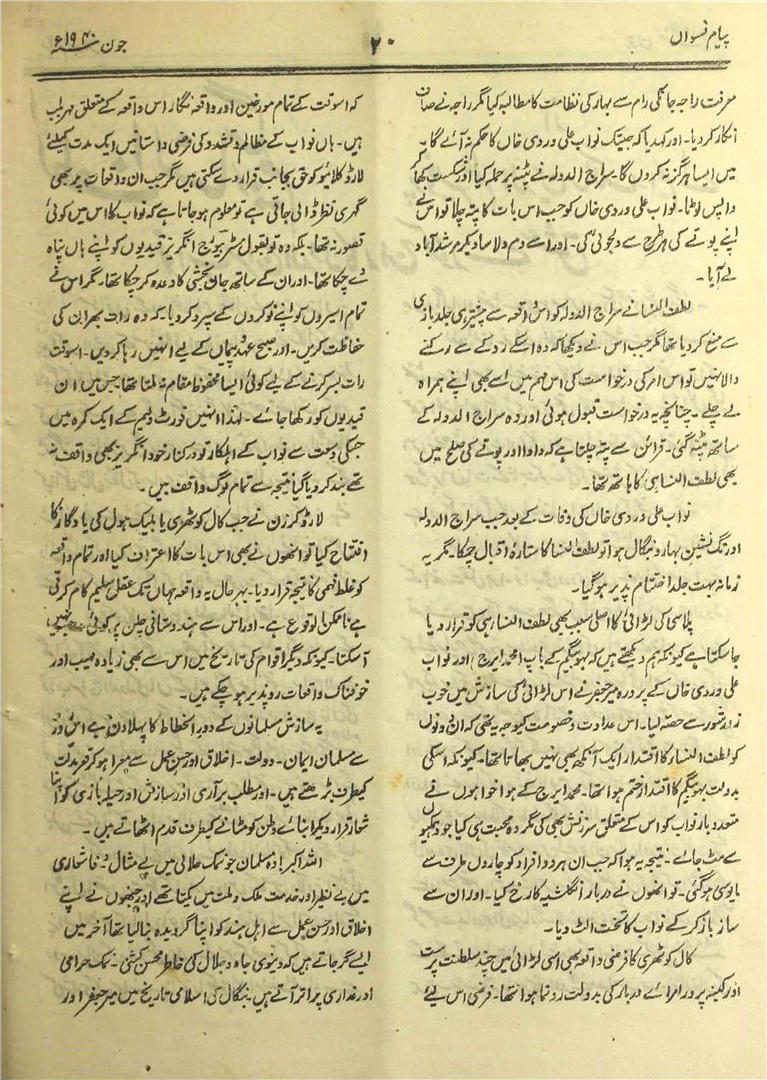 پیام نسواں
۲۰
جون ۱۹۴۰ء
معرفت راجہ جانکی رام سے بہار کی نظامت کا مطالبہ کیا مگر راجہ نے صاف
انکار کردیا۔ اور کہدیا کہ جبتک نواب علی وردی خاں کا حکم نہ آئے گا۔
میں ایسا ہرگز نہ کروں گا۔ سراج الدولہ نے پٹنہ پر حملہ کیا اور شکست کھا
واپس لوٹا۔ نواب علی وردی خاں کو جب اس بات کا پتہ چلا تو اس نے
اپنے پوتے کی ہر طرح سے دلجوئی کی۔ اور اسے دم دلاسا دیکر مرشدآباد
لے آیا۔
لطف النسا نے سراج الدولہ کو اس واقعہ سے پیشتر ہی جلد بازی
سے منع کردیا تھا مگر جب اس نے دیکھا کہ وہ اسکے روکے سے رکنے
والا نہیں تو اس امر کی درخواست کی اس مہم میں اسے بھی اپنے ہمراہ
لے چلے۔ چنانچہ یہ درخواست قبول ہوئی اور وہ سراج الدولہ کے
ساتھ پٹنہ گئی۔ قرائن سے پتہ چلتا ہے کہ دادا اور پوتے کی صلح میں
بھی لطف النسا ہی کا ہاتھ تھا۔
نواب علی وردی خاں کی وفات کے بعد جب سراج الدولہ
اورنگ نشین بہار و بنگال ہوا تو لطف النسا کا ستارۂ اقبال چمکا۔ مگر یہ
زمانہ بہت جلد اختتام پذیر ہوگیا۔
پلاسی کی لڑائی کا اصلی سبب بھی لطف النسا ہی کو قرار دیا
جاسکتا ہے کیونکہ ہم دیکھتے ہیں کہ بہو بیگم کے باپ (محمد ایرج) اور نواب
علی وردی خاں کے پروردہ میر جعفر نے اس لڑائی کی سازش میں خوب
زور شور سے حصہ لیا۔ اس عداوت و خصومت کیوجہ یہ تھی کہ ان دونوں
کو لطف النسا کا اقتدار ایک آنکھ بھی نہیں بھاتا تھا۔ کیونکہ اسکی
بدولت بہو بیگم کا اقتدار ختم ہوا تھا۔ محمد ایرج کے ہوا خواہوں نے
متعدد بار نواب کو اس کے متعلق سرزنش بھی کی مگر وہ محبت ہی کیا جو دھمکیوں
سے مٹ جائے۔ نتیجہ یہ ہوا کہ جب ان ہر دو افراد کو چاروں طرف سے
مایوسی ہوگئی۔ تو انھوں نے دربار انگلشیہ کا رخ کیا۔ اور ان سے
ساز باز کرکے نواب کا تختہ الٹ دیا۔
کال کوٹھری کا فرضی واقعہ بھی اسی لڑائی میں چند سلطنت پرست
اور کینہ پرور امرائے دربار کی بدولت رونما ہوا تھا۔ فرضی اس لئے
کہ اسوقت کے تمام مورخین اور واقعہ نگار اس واقعہ کے متعلق مہر بلب
ہیں۔ ہاں نواب کے مظالم و تشدد کی فرضی داستانیں ایک مدت کیلئے
لارڈ کلائیو کو حق بجانب قرار دے سکتی ہیں مگر جب ان واقعات پر بھی
گہری نظر ڈالی جاتی ہے تو معلوم ہوجاتا ہے کہ نواب کا اس میں کوئی
قصور نہ تھا۔ بلکہ وہ تو بقول مسٹر انگریز قیدیوں کو اپنے ہاں پناہ
دے چکا تھا۔ اور ان کے ساتھ جان بخشی کا وعدہ کرچکا تھا۔ مگر اس نے
تمام اسیروں کو اپنے نوکروں کے سپرد کردیا۔ کہ وہ رات بھر ان کی
حفاظت کریں۔ اور صبح عہد و پیماں کے لیے انہیں رہا کردیں۔ اسوقت
رات بسر کرنے کے لیے کوئی ایسا محفوظ مقام نہ ملتا تھا جس میں ان
قیدیوں کو رکھا جائے۔ لہٰذا انہیں فورٹ ولیم کے ایک کمرہ میں
جسکی وسعت سے نواب کے اہلکار تو درکنار خود انگریز بھی واقف نہ
تھے بند کردیا گیا نتیجہ سے تمام لوگ واقف ہیں۔
لارڈ کرزن نے جب کال کوٹھری یا بلیک ہول کی یادگار کا
افتتاح کیا تو انھوں نے بھی اس بات کا اعتراف کیا اور تمام واقعہ
کو غلط فہمی کا نتیجہ قرار دیا۔ بہرحال یہ واقعہ جہاں تک عقل سلیم کام کرتی
ہے ناممکن الوقوع ہے۔ اور اس سے ہندوستانی چلن پر کوئی نہیں
آسکتا۔ کیونکہ دیگر اقوام کی تاریخ میں اس سے بھی زیادہ مہیب اور
خوفناک واقعات روپذیر ہوچکے ہیں۔
یہ سازش مسلمانوں کے دورِ انحطاط کا پہلا دن ہے اس روز
سے مسلمان ایمان۔ دولت۔ اخلاق اور حسن عمل سے معرا ہوکر قعر مذلت
کیطرف بڑھتے ہیں۔ اور مطلب برآری اور سازش اور حیلہ بازی کو اپنا
شعار قرار دیکر ابنائے وطن کو مٹانے کیطرف قدم اٹھاتے ہیں۔
اللہ اکبر! وہ مسلمان جو نمک حلالی میں بے مثال، وفا شعاری
میں بے نظیر اور خدمت ملک و ملت میں یکتا تھے اور جنھوں نے اپنے
اخلاق اور حسن عمل سے اہل ہند کو اپنا گرویدہ بنالیا تھا آخر میں
ایسے گر جاتے ہیں کہ دنیوی جاہ و جلال کی خاطر محسن کشی۔ نمک حرامی
اور غداری پر اتر آتے ہیں۔ بنگال کی اسلامی تاریخ میں میر جعفر اور